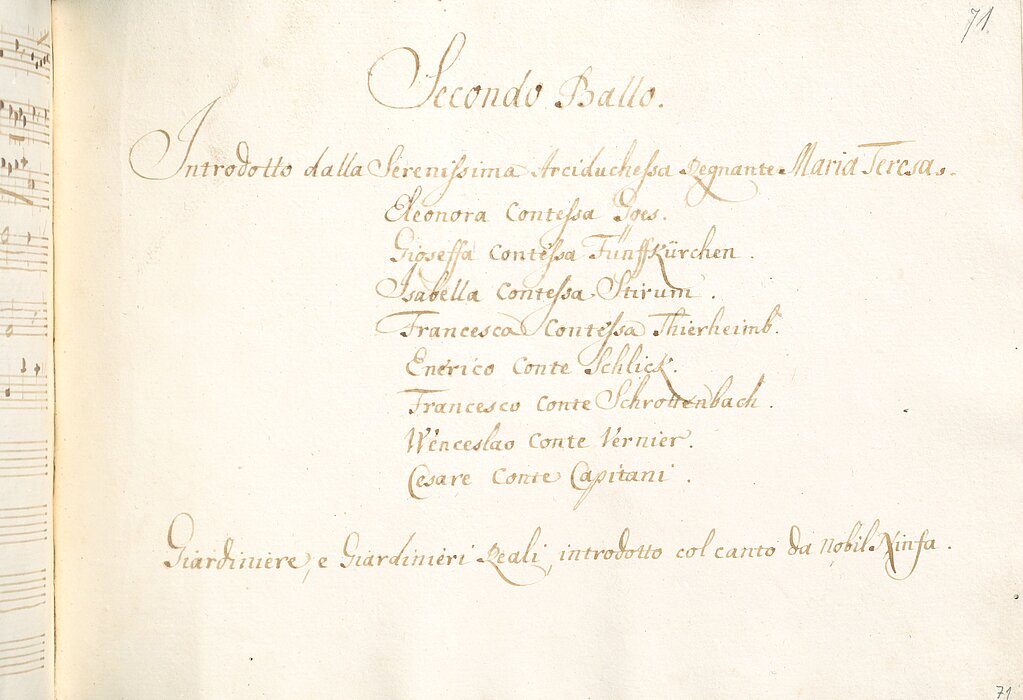 71.
Secondo Ballo.
Introdotto dalla Serenissima Arciduchessa Regnante Maria Teresa.
Eleonora Contessa Goes.
Gioseffa Contessa Fünffkürchen.
Isabella Contessa Stirum.
Francesca Contessa Thierheimb.
Enerico Conte Schlick.
Francesco Conte Schrottenbach.
Wenceslao Conte Vernier.
Cesare Conte Capitani.
Giardiniere, e Giardinieri Reali, introdotto col canto da nobil Ninfa.
71